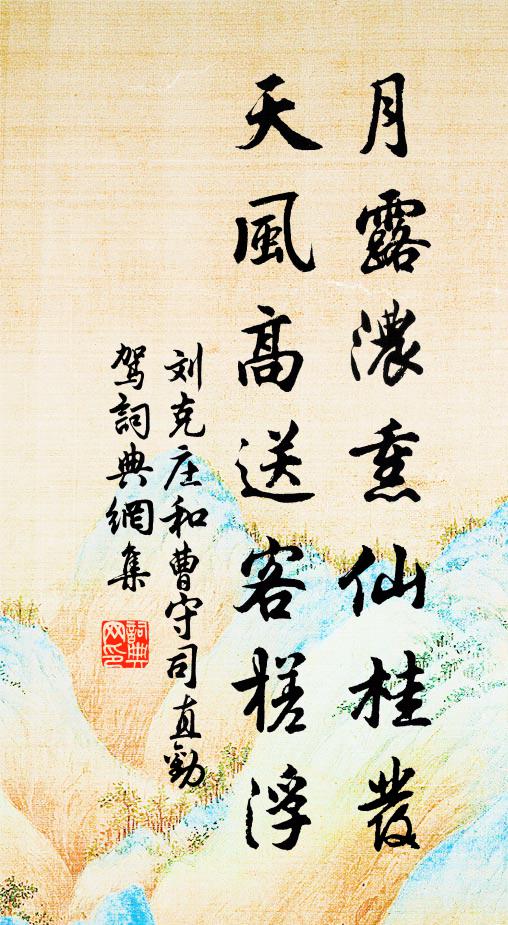 月露濃熏仙桂發
天風高送客槎浮
刘克庄和曹守司直勸
駕詞典網集
詞典網印